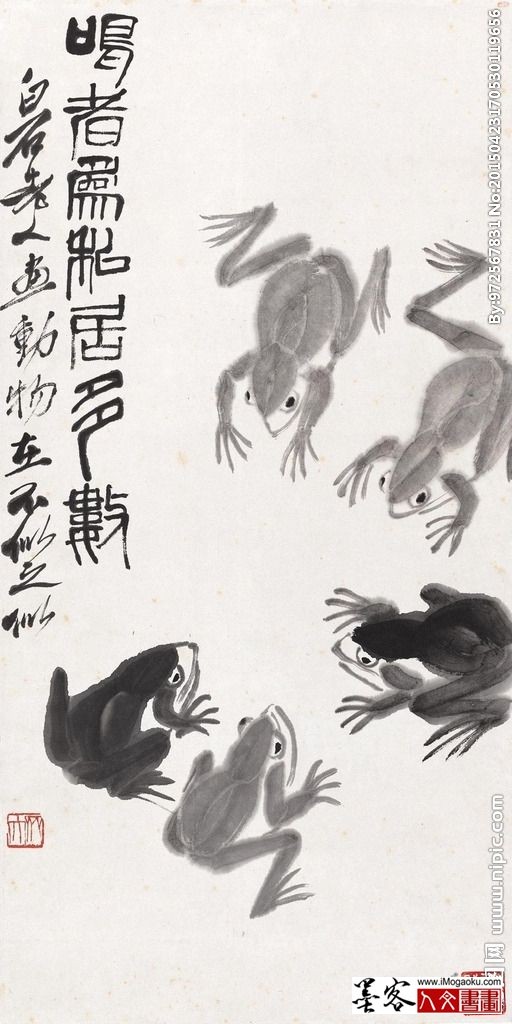 鳴者為私居多數
白石老人画動物在不似之似
By:972567831 No:20150423170530119656
网 www.nipic.com
www.iMogaoku.com
墨客
人文書畫